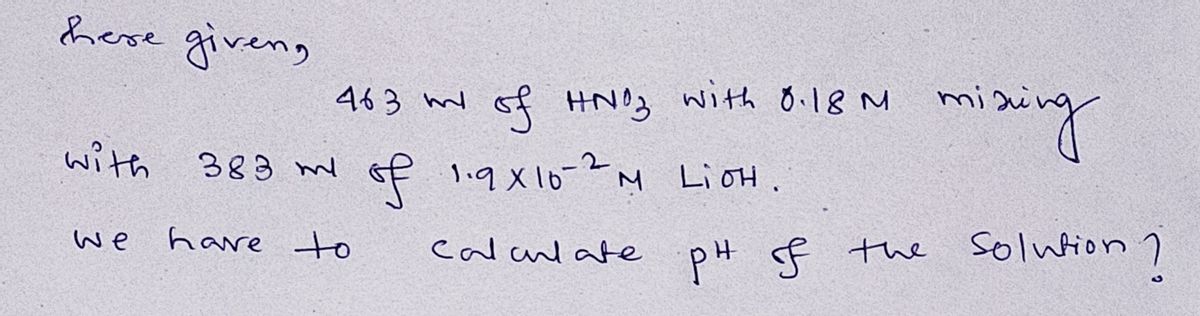 here given,
463 ml of HNO3 with 0.18 M mixing
with 383 ml of 1.9 X 10-2 M LiOH.
we have to calculate pH of the solution?